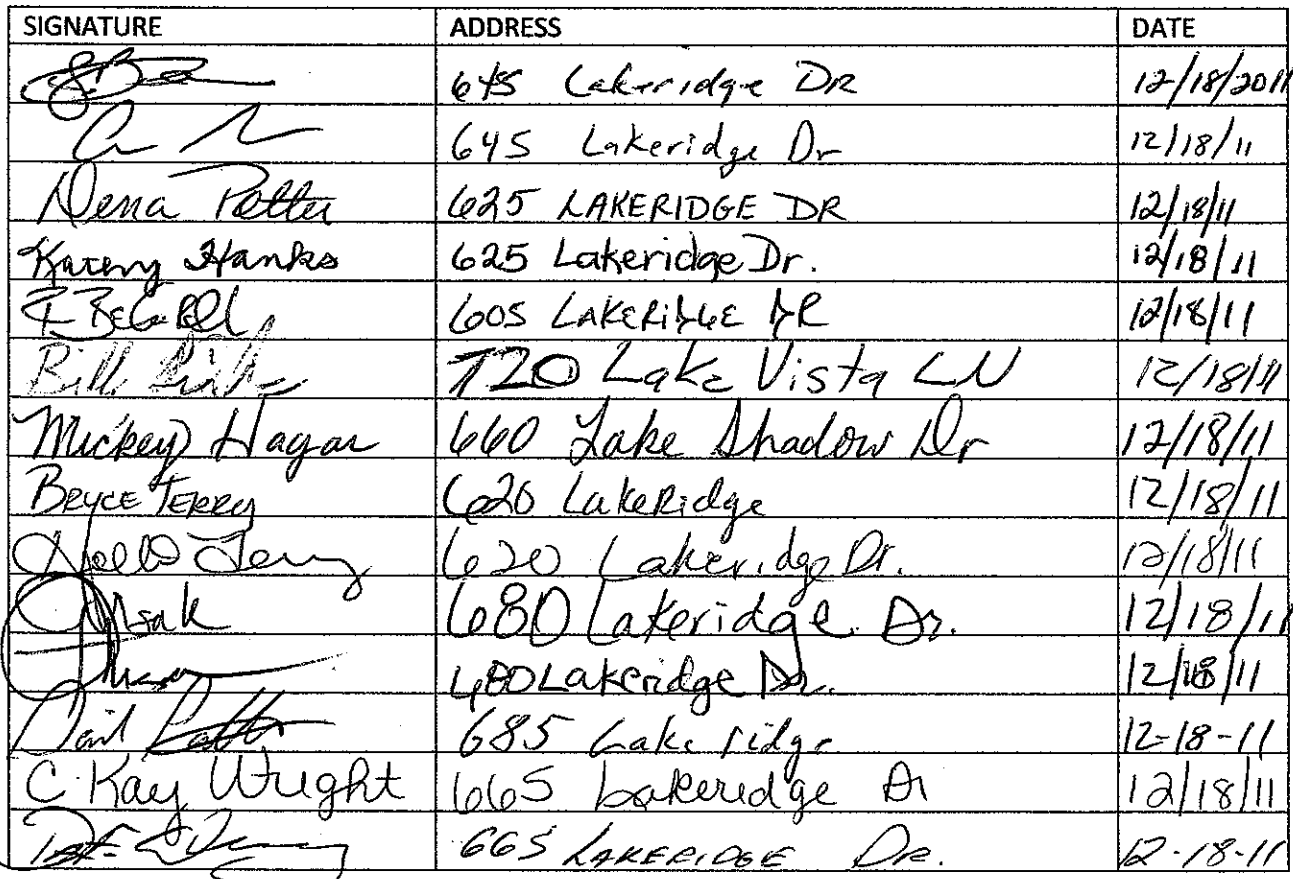 SIGNATURE ADDRESS DATE
645 Lakeridge DR 12/18/2011
645 Lakeridge Dr 12/18/11
Nena Potter 625 LAKERIDGE DR 12/18/11
Hanks 625 Lakeridge Dr. 12/18/11
605 LAKERIDGE DR 12/18/11
Bill 720 Lake Vista LN 12/18/11
Mickey Hagar 660 Lake Shadow Dr 12/18/11
BRYCE TERRY 620 LakeRidge 12/18/11
Terry 620 Lakeridge Dr. 12/18/11
680 Lakeridge Dr. 12/18/11
680 Lakeridge Dr. 12/18/11
685 Lakeridge 12-18-11
C. Kay Wright 665 Lakeridge Dr 12/18/11
665 LAKERIDGE DR. 12-18-11